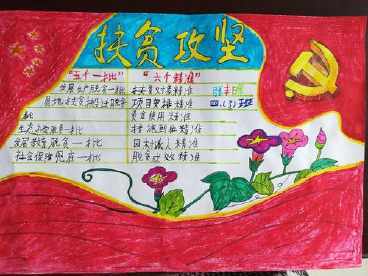 扶贫攻坚
"五个一批" "六个精准"
发展生产脱贫一批 扶贫对象精准
易地扶贫搬迁脱贫一批 项目安排精准
生态补偿脱贫一批 资金使用精准
发展教育脱贫一批 措施到户精准
社会保障兜底一批 因村派人精准
脱贫成效精准
四(1)班